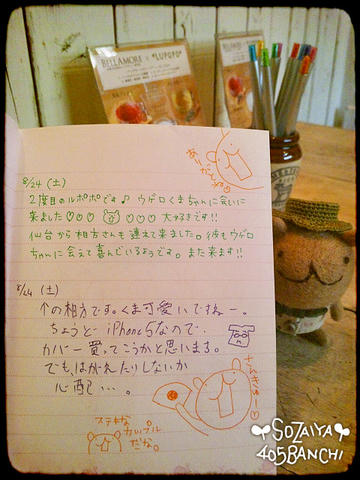 BELLAMORE × *LUPOPO*
ありがとうね♡
8/24 (土)
2度目のルポポです♪ ウゲロくまちゃんに会いに
来ました♡♡♡ ♡♡♡ 大好きです!!
仙台から相方さんも連れて来ました。彼もウゲロ
ちゃんに会えて喜んでいるようです。また来ます!!
8/24 (土)
↑の相方です。くま可愛いですねー。
ちょうど iPhone5なので、
カバー買ってこうかと思います。
でも、はがれたりしないか
心配…。
さんきゅー♡
ステキな
カップル
だな。
SOZAIYA
405BANCHI